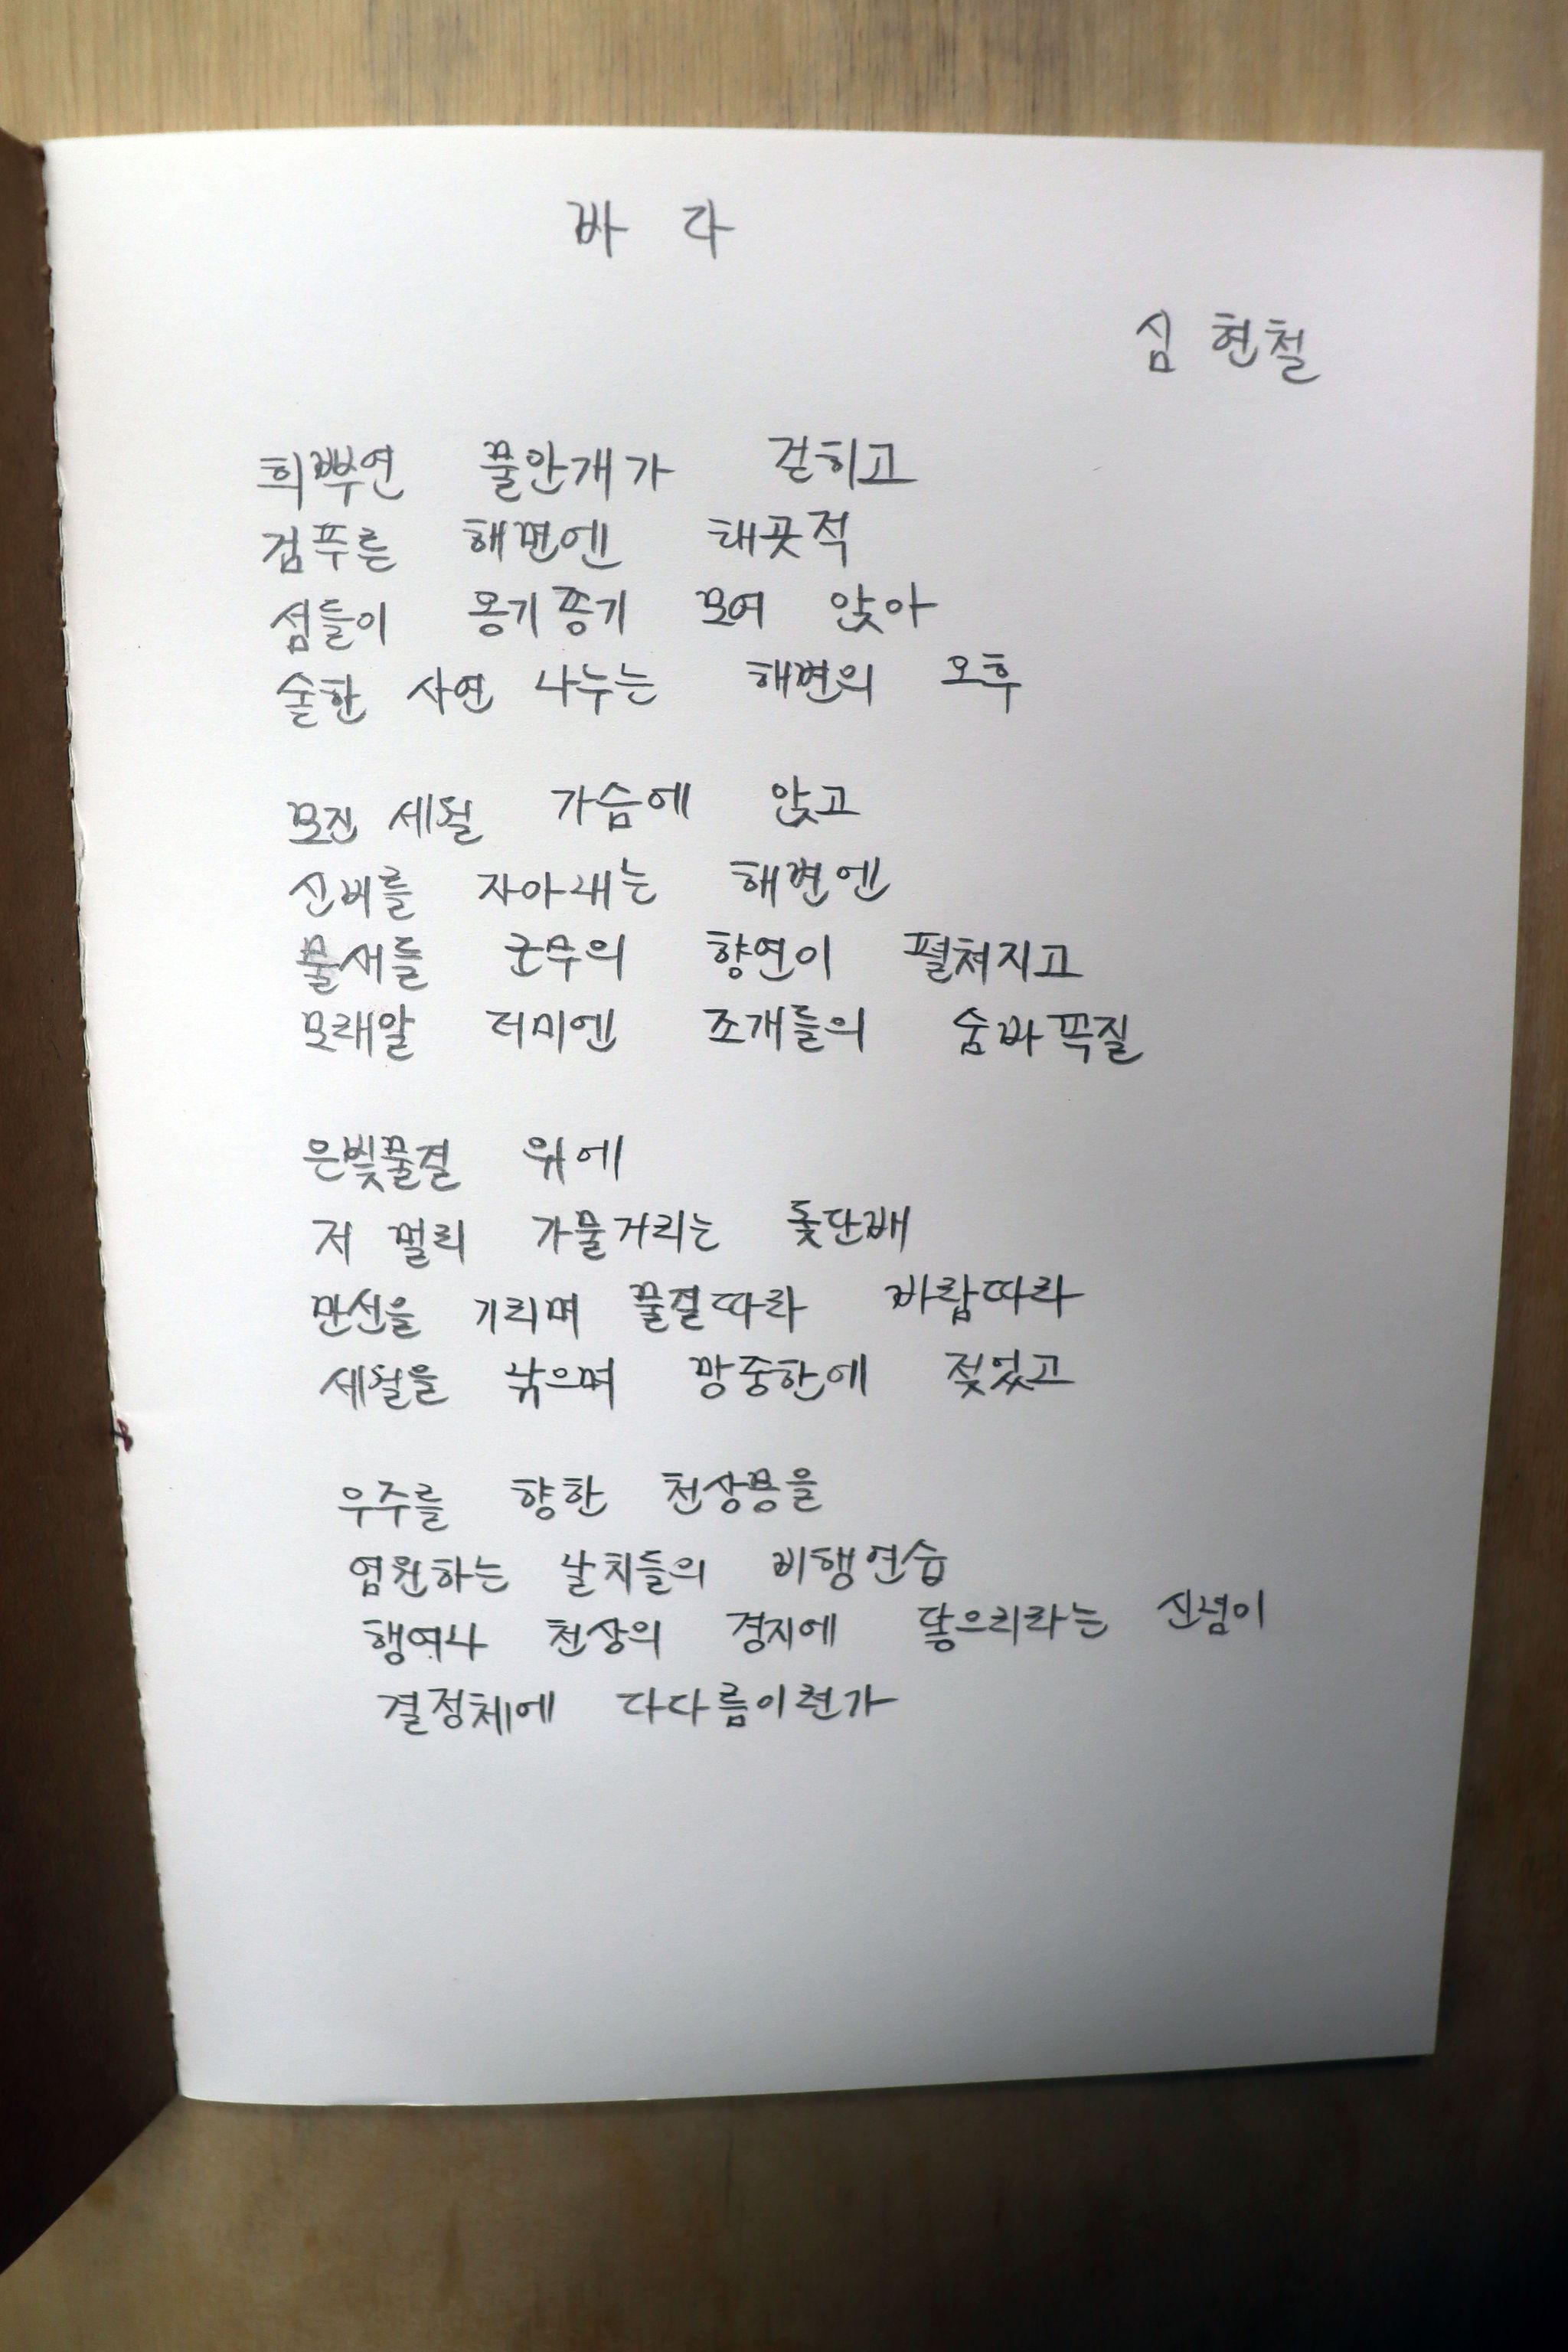 바 다
심 현철
희뿌연 물안개가 걷히고
검푸른 해면엔 태곳적
섬들이 옹기종기 모여 앉아
숱한 사연 나누는 해변의 오후
모진 세월 가슴에 안고
신비를 자아내는 해변엔
물새들 군무의 향연이 펼쳐지고
모래알 더미엔 조개들의 숨바꼭질
은빛물결 위에
저 멀리 가물거리는 돛단배
만선을 기리며 물결따라 바람따라
세월을 낚으며 망중한에 젖었고
우주를 향한 천상몽을
염원하는 날치들의 비행연습
행여나 천상의 경지에 닿으리라는 신념이
결정체에 다다름이련가